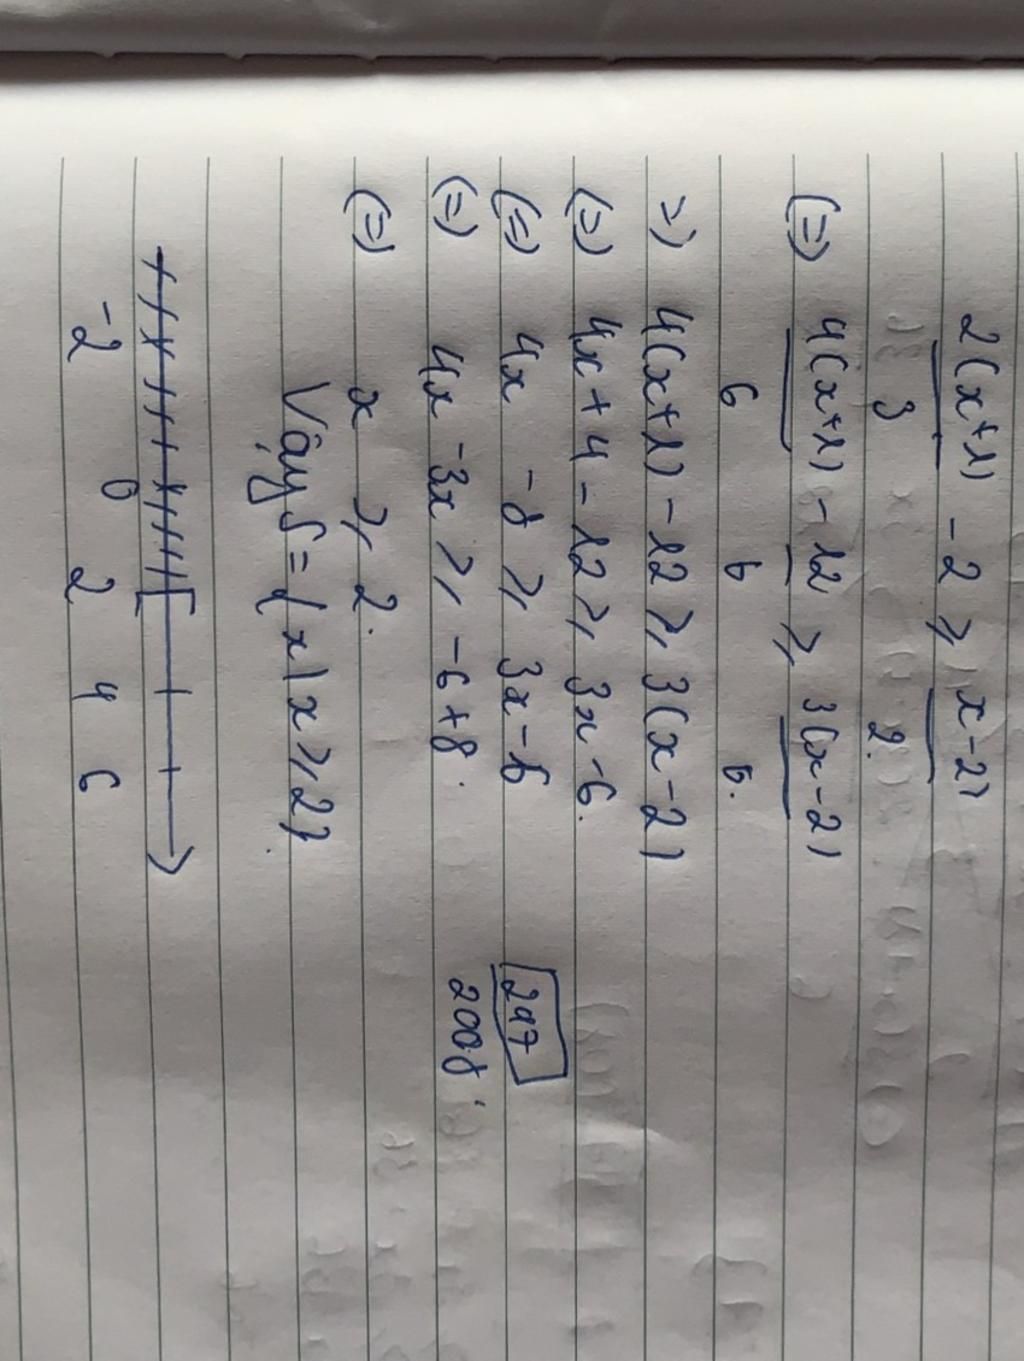 2(x+1) - 2 ≥ x-2)
3 2.
(=) 4(x+1) - 12 ≥ 3(x-2)
6 6 6.
=) 4(x+1) - 12 ≥ 3(x-2)
(=) 4x + 4 - 12 ≥ 3x - 6.
(=) 4x - 8 ≥ 3x - 6
(=) 4x - 3x ≥ -6 + 8.
(=) x ≥ 2.
Vậy S = { x | x ≥ 2}.
-2 0 2 4 6
247
2008.